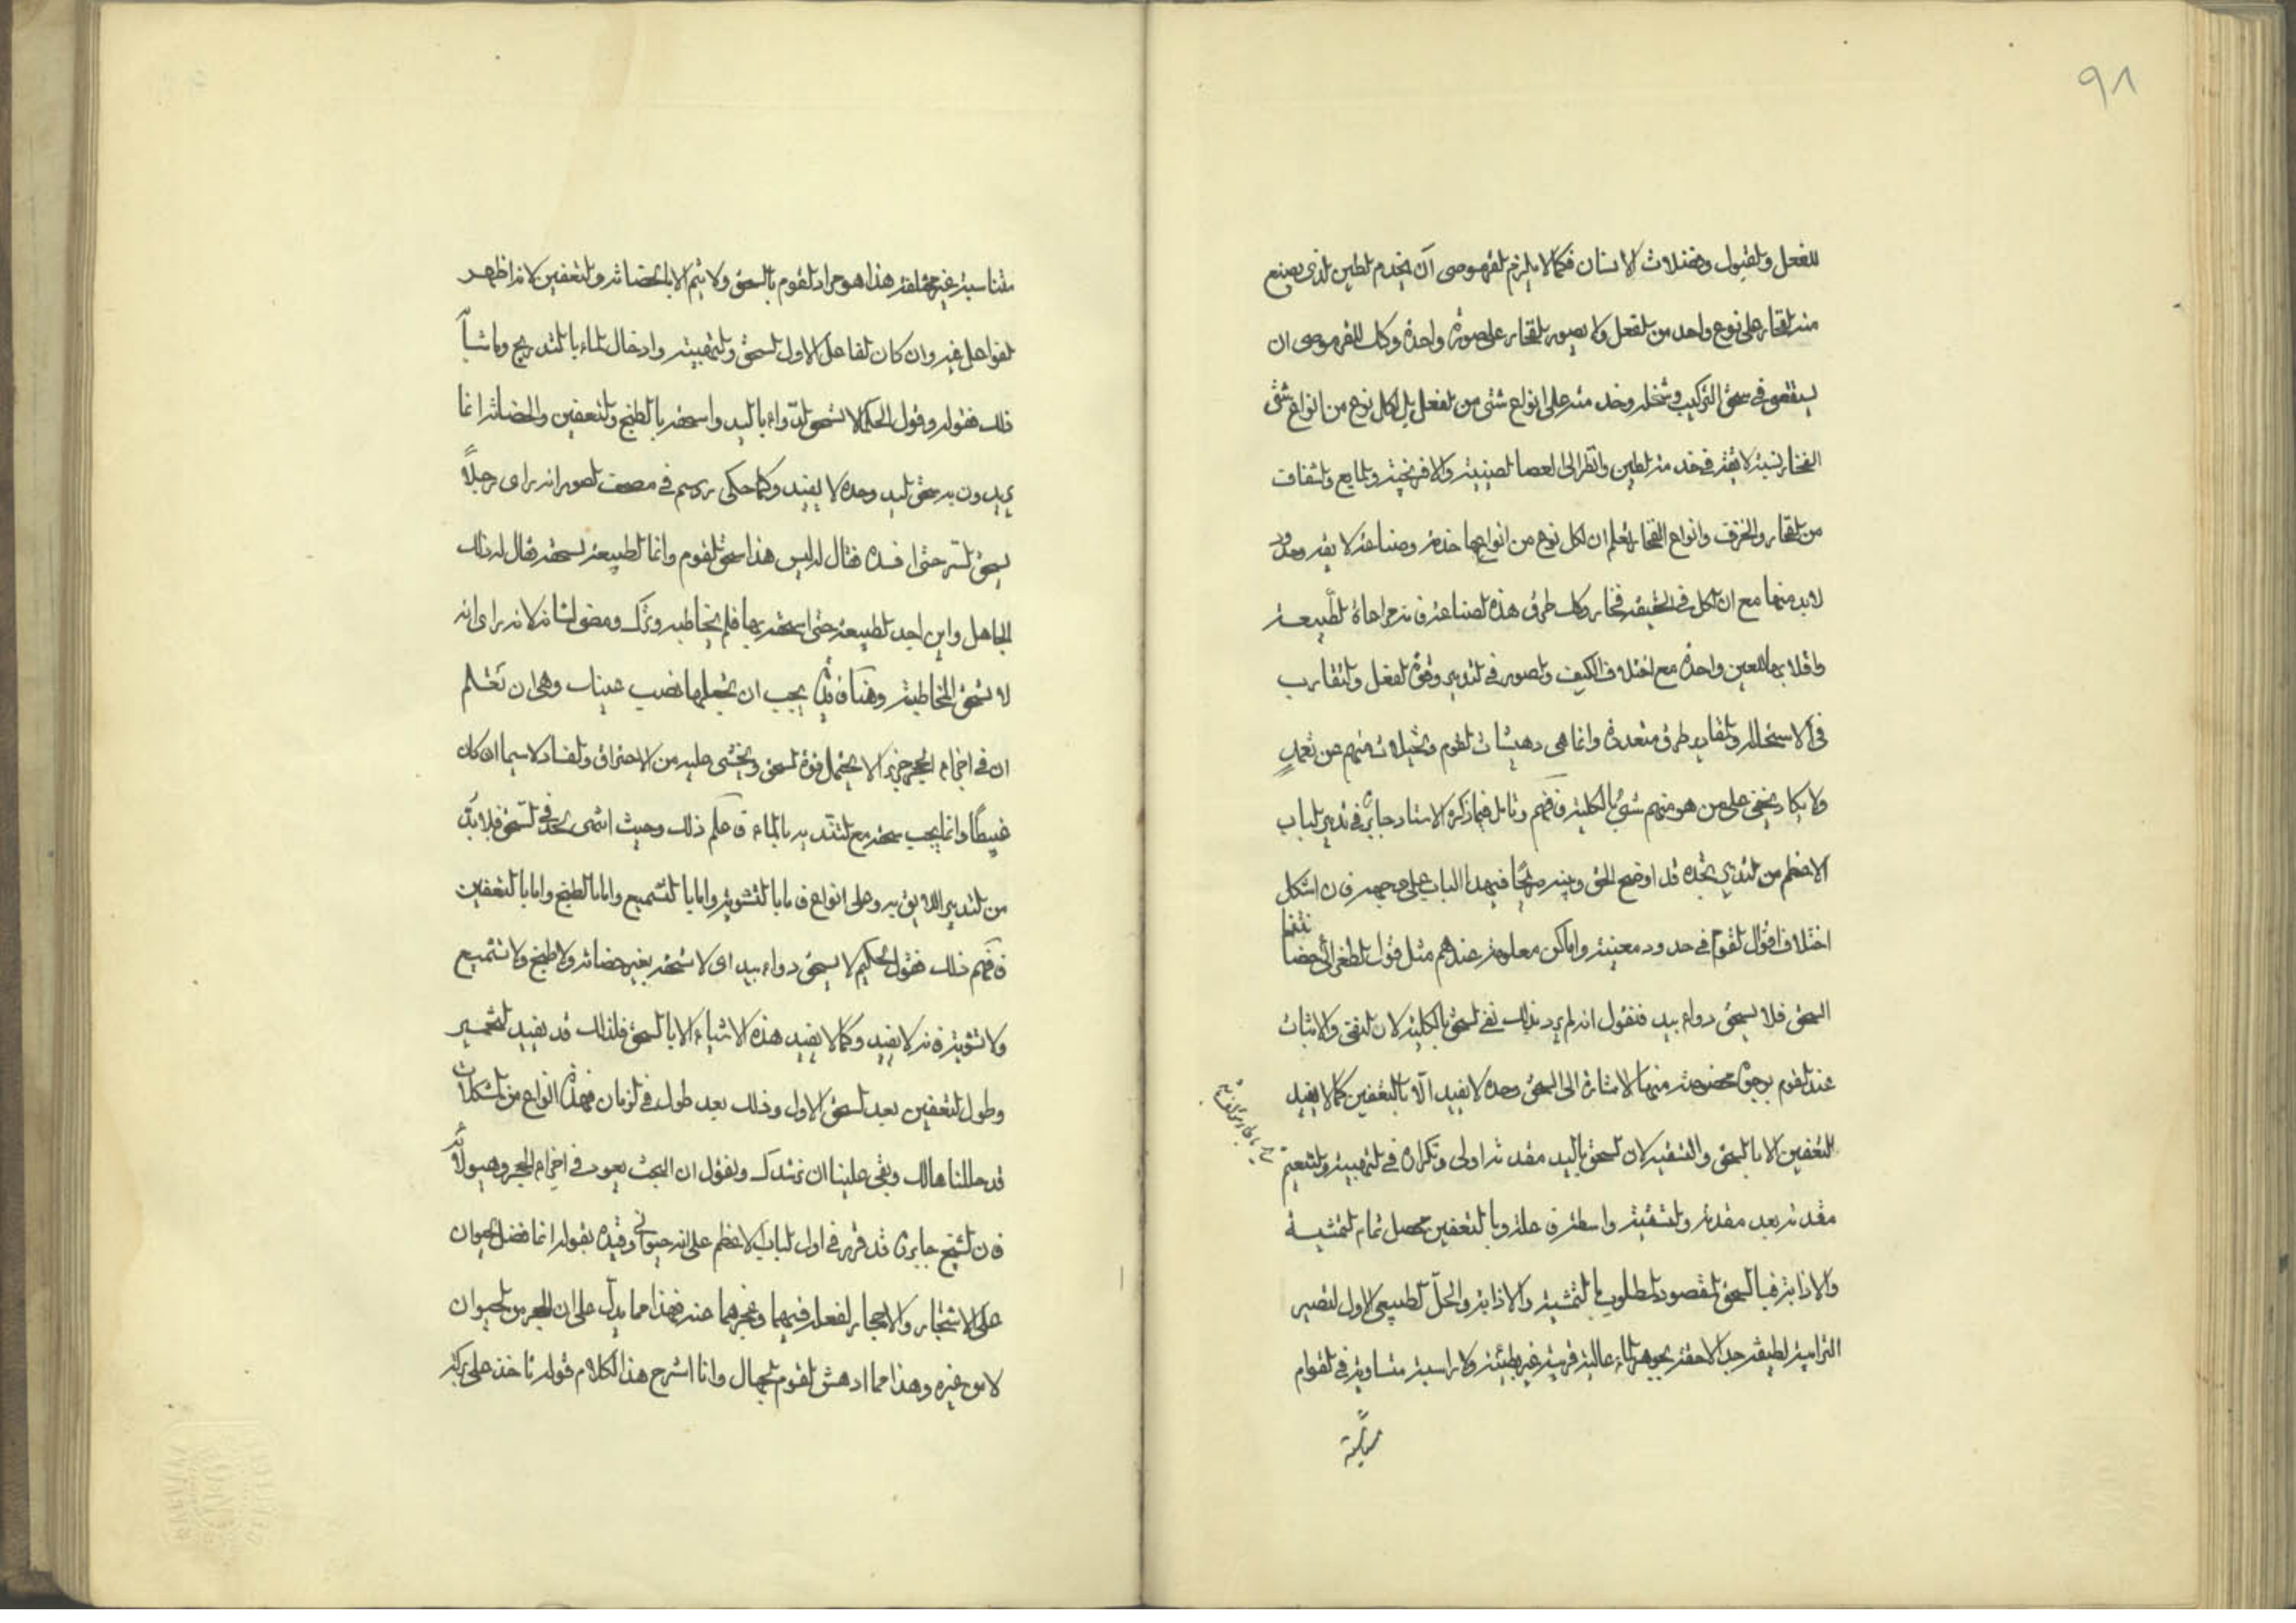 ٩٨
للفعل والقبول وفضلات الانسان فكما لا يلزم القرموصي ان يخدم الطين الذي يصنع
منه الفخار على نوع واحد من الفعل ولا يصور الفخار على صورة واحدة وكك للقرموصي ان
يستقصي في سحق التركيب ونخله وخدمته على انواع شتى من الفعل بل لكل نوع من انواع شتى
الفخار نسبة لايقة في خدمة الطين وانظر الى العصا الصينية والافرنجية والمايع والشفاف
من الفخار والخزف وانواع الفخار تعلم ان لكل نوع من انواعها خدمة وصناعة لايقة وحدود
لابد منها مع ان الكل في الحقيقة فخار وكك طرق هذه الصناعة فانه مراعاة الطبيعة
واقلابها للعين واحدة مع اختلاف الكيف والصور في التدبير وقوة الفعل والتقارب
في الاستحالة والمقادير طرق متعددة وانما هي دهشات القوم وتخيلات منهم عن تعمد
ولا يكاد يخفى على من هو منهم شئ بالكلية فافهم وتامل فيما ذكره الاستاد جابر في تدبير الباب
الاعظم من التدبير تجده قد اوضح الحق وبينه صريحا فيهذا الباب على وجهه فان اشكل
اختلاف اقوال القوم في حدود معينة واماكن معلومة عندهم مثل قول الطغرائي حضا تتنها
السحق فلا يسحق دواء بيد فنقول انه لم يرد بذلك نفي السحق بالكلية لان النفي والاثبات
عند القوم بوجوه مخصوصة منها الاشارة الى السحق وحده لا يفيد الا بالتعفين كما لا يفيد
التعفين الا بالسحق والتسقية لان السحق باليد مقدمة اولى وتكراره في التهبية والتنعيم
مقدمة بعد مقدمة والتسقية واسطة فاعلة وبالتعفين يحصل تمام التمشية
والاذابة فبالسحق المقصود المطلوب بالتمشية والاذابة والحل الطبيعي الاول لتصير
الترابية لطيفة جدا لاحقة بجوهر الماء عالية قريبة غير بطيئة ولا راسبة متساوية في القوام
متناسبة غير مختلفة هذا هو مراد القوم بالسحق ولا يتم الا بالحضانة والتعفين لانه اظهر
الفواعل فيه وان كان الفاعل الاول السحق والتهبية وادخال الماء بالتدريج وما شابه
ذلك فقوله وقول الحكيم لا تسحق الدواء باليد واسحقه بالطبخ والتعفين والحضانة انما
يريدون به سحق اليد وحده لا يفيد وكما حكى برسم في مصحف الصور انه راى رجلاً
يسحق السر حتى افسده فقال له ليس هذا سحق القوم وانما الطبيعة تسحقه فقال له ذلك
الجاهل واين اجد الطبيعة حتى اسحقه بها فلم يخاطبه وتركه ومضى لشانه لانه راى انه
لا يستحق المخاطبة وهنا فائدة يجب ان تجعلها نصب عينيك وهي ان تعلم
ان في اجزاء الحجر جزءا لا يحتمل قوة السحق ويخشى عليه من الاحتراق والفساد لا سيما ان كان
غبيطا وانما يجب سحقه مع التنديه بالماء فاعلم ذلك وحيث انتهى بحدة في السحق فلا بد
من التدبير اللايق به وعلى انواع فاما بالتشوية واما بالتشميع واما بالطبخ واما بالتعفين
فافهم ذلك فقول الحكيم لا يسحق دواء بيد اى لا تسحقه بغير حضانة ولا طبخ ولا تشميع
ولا تشوية فانه لا يفيد وكما لا يفيد هذه الاشياء الا بالسحق فلذلك قد يفيد التخمير
وطول التعفين بعد السحق الاول وذلك بعد طول في الزمان فهذه انواع من المشكلات
قد حللناها لك وبقى علينا ان نستدرك ونقول ان البحث يعود في اجزاء الحجر وهيولاه
فان الشيخ جابر قد قرر في اول الباب الاعظم على انه حيواني وقيده بقوله انما فضل الحيوان
على الاشجار والاحجار لفعله فيهما وعجزهما عنه فهذا مما يدل على ان الحجر من الحيوان
لا من غيره وهذا مما ادهش القوم الجهال وانا اشرح هذا الكلام قوله تاخذ على بركة